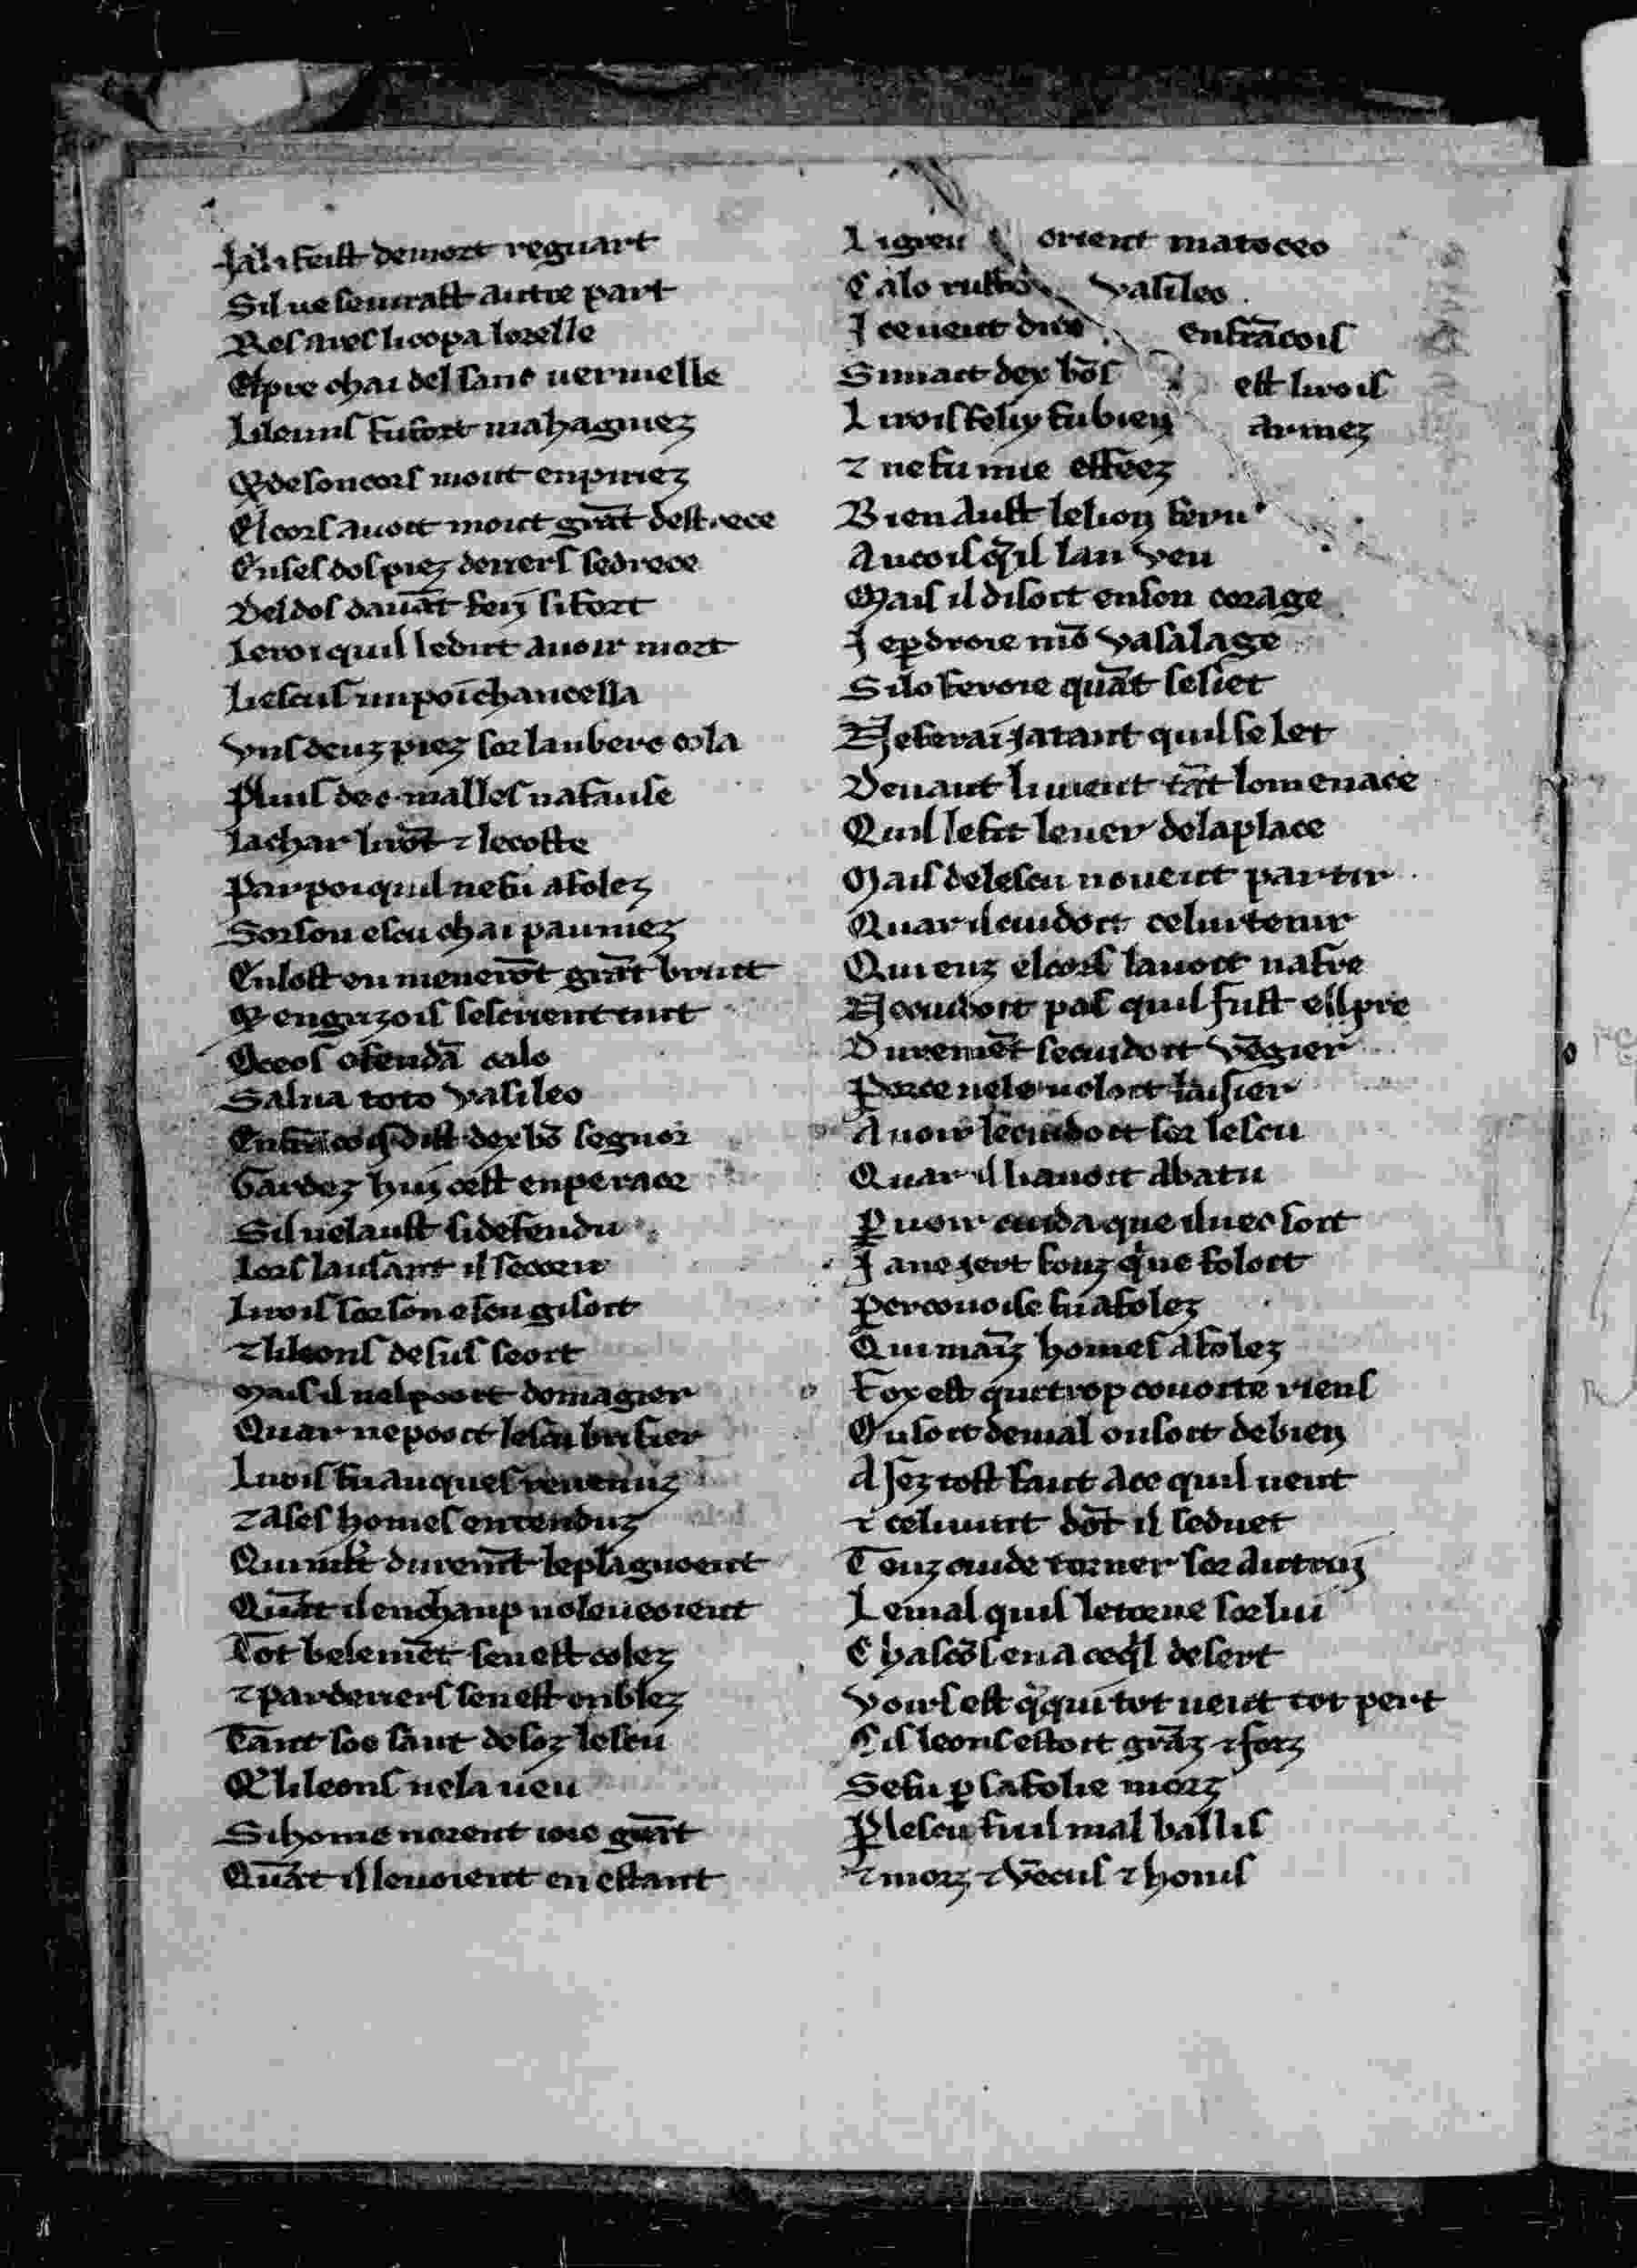 Ia li feist de mort reguart
Sil ne sen trast autre part
Res a res li copa lorelle
El pre chai del sanc uermelle
Li leuns fu fort mahagniez
Q̃ de son cors mout enpiriez
El cors auoit mout grãt destrece
En ses dos piez derrers se drece
Des dos dauãt feri si fort
Le roi quil le dut auoir mort
Li escus un poi chancella
Vns deuz piez sor lauberc cola
Plus de c malles na fause
La char li rõt ⁊ le coste
Par poi quil ne fu afolez
Sor son escu chai paumez
En lost en menerõt grãt bruit
Q̃ en grizois sescrient tuit
O ceos ofendã calo
Salua toto vasileo
En frãcois dist dex bõ segnor
Gardez hui cest enperaor
Sil ne laust si defendu
Lors lausant il secoru
Li rois sor son escu gisoit
⁊ li leons desus seoit
Mais il nel pooit domagier
Quar ne pooit lescu brisier
Li rois fu auques reuenuz
⁊ a ses homes entenduz
Qui mlt duremt le plagnoent
Quãt il en champ nol eueoient
Tot belemẽt sen est colez
⁊ par derrers sen est enblez
Tant soe saut desoz lescu
Q̃ li leons ne la ueu
Si home norent ioie grãt
Quãt il leuoient en estant
Li greu orient matoceo
Calo vasileo
I ce ueut dire en frãcois
S dex bõs est li rois
Li rois feliz fu bien armez
⁊ ne fu mie effreez
Bien aust le lion feru
Ancois q̃il lan veu
Mais il disoit en son corage
I e p̱droie mõ vasalage
Si lo feroie quãt se siet
Ne ferai ia tant quil se let
Deuant li uient tãt lo menace
Quil le fit leuer de la place
Mais de lescu no ueut partir
Quar il cuidoit celui tenir
Qui enz el cors lauoit nafre
Ne cuidoit pas quil fust el pre
Duremẽt se cuidoit vẽgier
Por ce ne lo uoloit laisier
A uoir le cuidoit sor lescu
Quar il li auoit abatu
P̱ uoir cuida que iluec soit
I a ne gert fouz que foloit
Per couoise fu afolez
Qui maiz homes a folez
Fox est qui trop couoite riens
O u soit de mal ou soit de bien
A sez tost faut a ce quil ueut
⁊ celi nuit dõt il se duet
Touz cuide torner sor autrui
Le mal quil le torne sor lui
Chascõs en a ce q̃l desert
Voirs est q̃ qui tot ueut tot pert
Cis leons estoit grãz ⁊ forz
Se fu p̱ sa folie morz
P̱ lescu fu il mal baillis
⁊ morz ⁊ vẽcus ⁊ honis